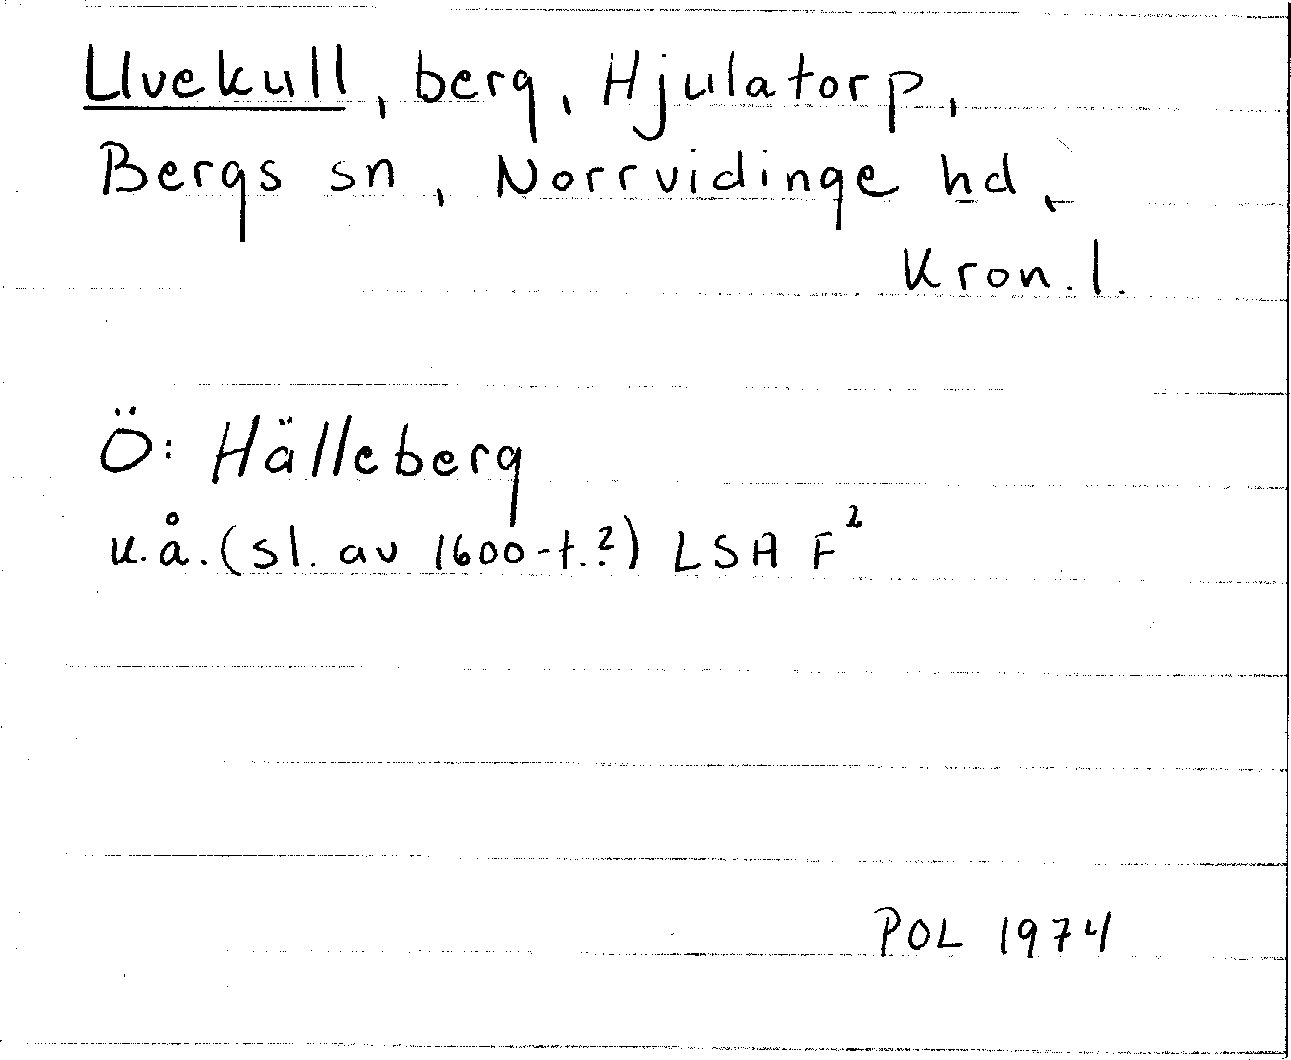 Uvekull, berg, Hjulatorp,
Bergs sn, Norrvidinge hd,
Kron. l.
Ö: Hälleberg
u.å. (sl. av 1600-t.?) LSA F²
POL 1974